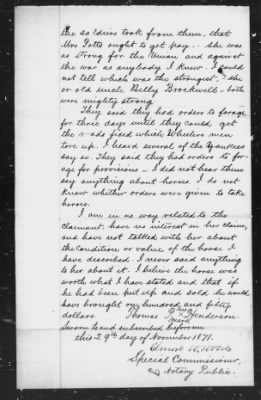 the soldiers took from them, that
Mrs Potts ought to get pay. She was
as strong for the Union and against
the war as anybody I knew. I could
not tell which was the strongest, she
or old uncle Billy Brockwell - both
were mighty strong
They said they had orders to forage
for those days until they could get
the roads fixed which Wheelers men
tore up. I heard several of the Yankees
say so. They said they had orders to for-
age for provisions - I did not hear them
say anything about horses. I do not
know whether orders were given to take
horses.
I am in no way related to the
claimant, have no interest in her claim,
and have not talked with her about
the condition or value of the horse I
have described. I never said anything
to her about it. I believe the horse was
worth what I have stated and that if
he had been put up and sold he would
have brought one hundred and fifty
dollars. Thomas his mark Henderson
Sworn to and subscribed before me
this 29th day of November 1871.
Special Commissioner,
Notary Public.